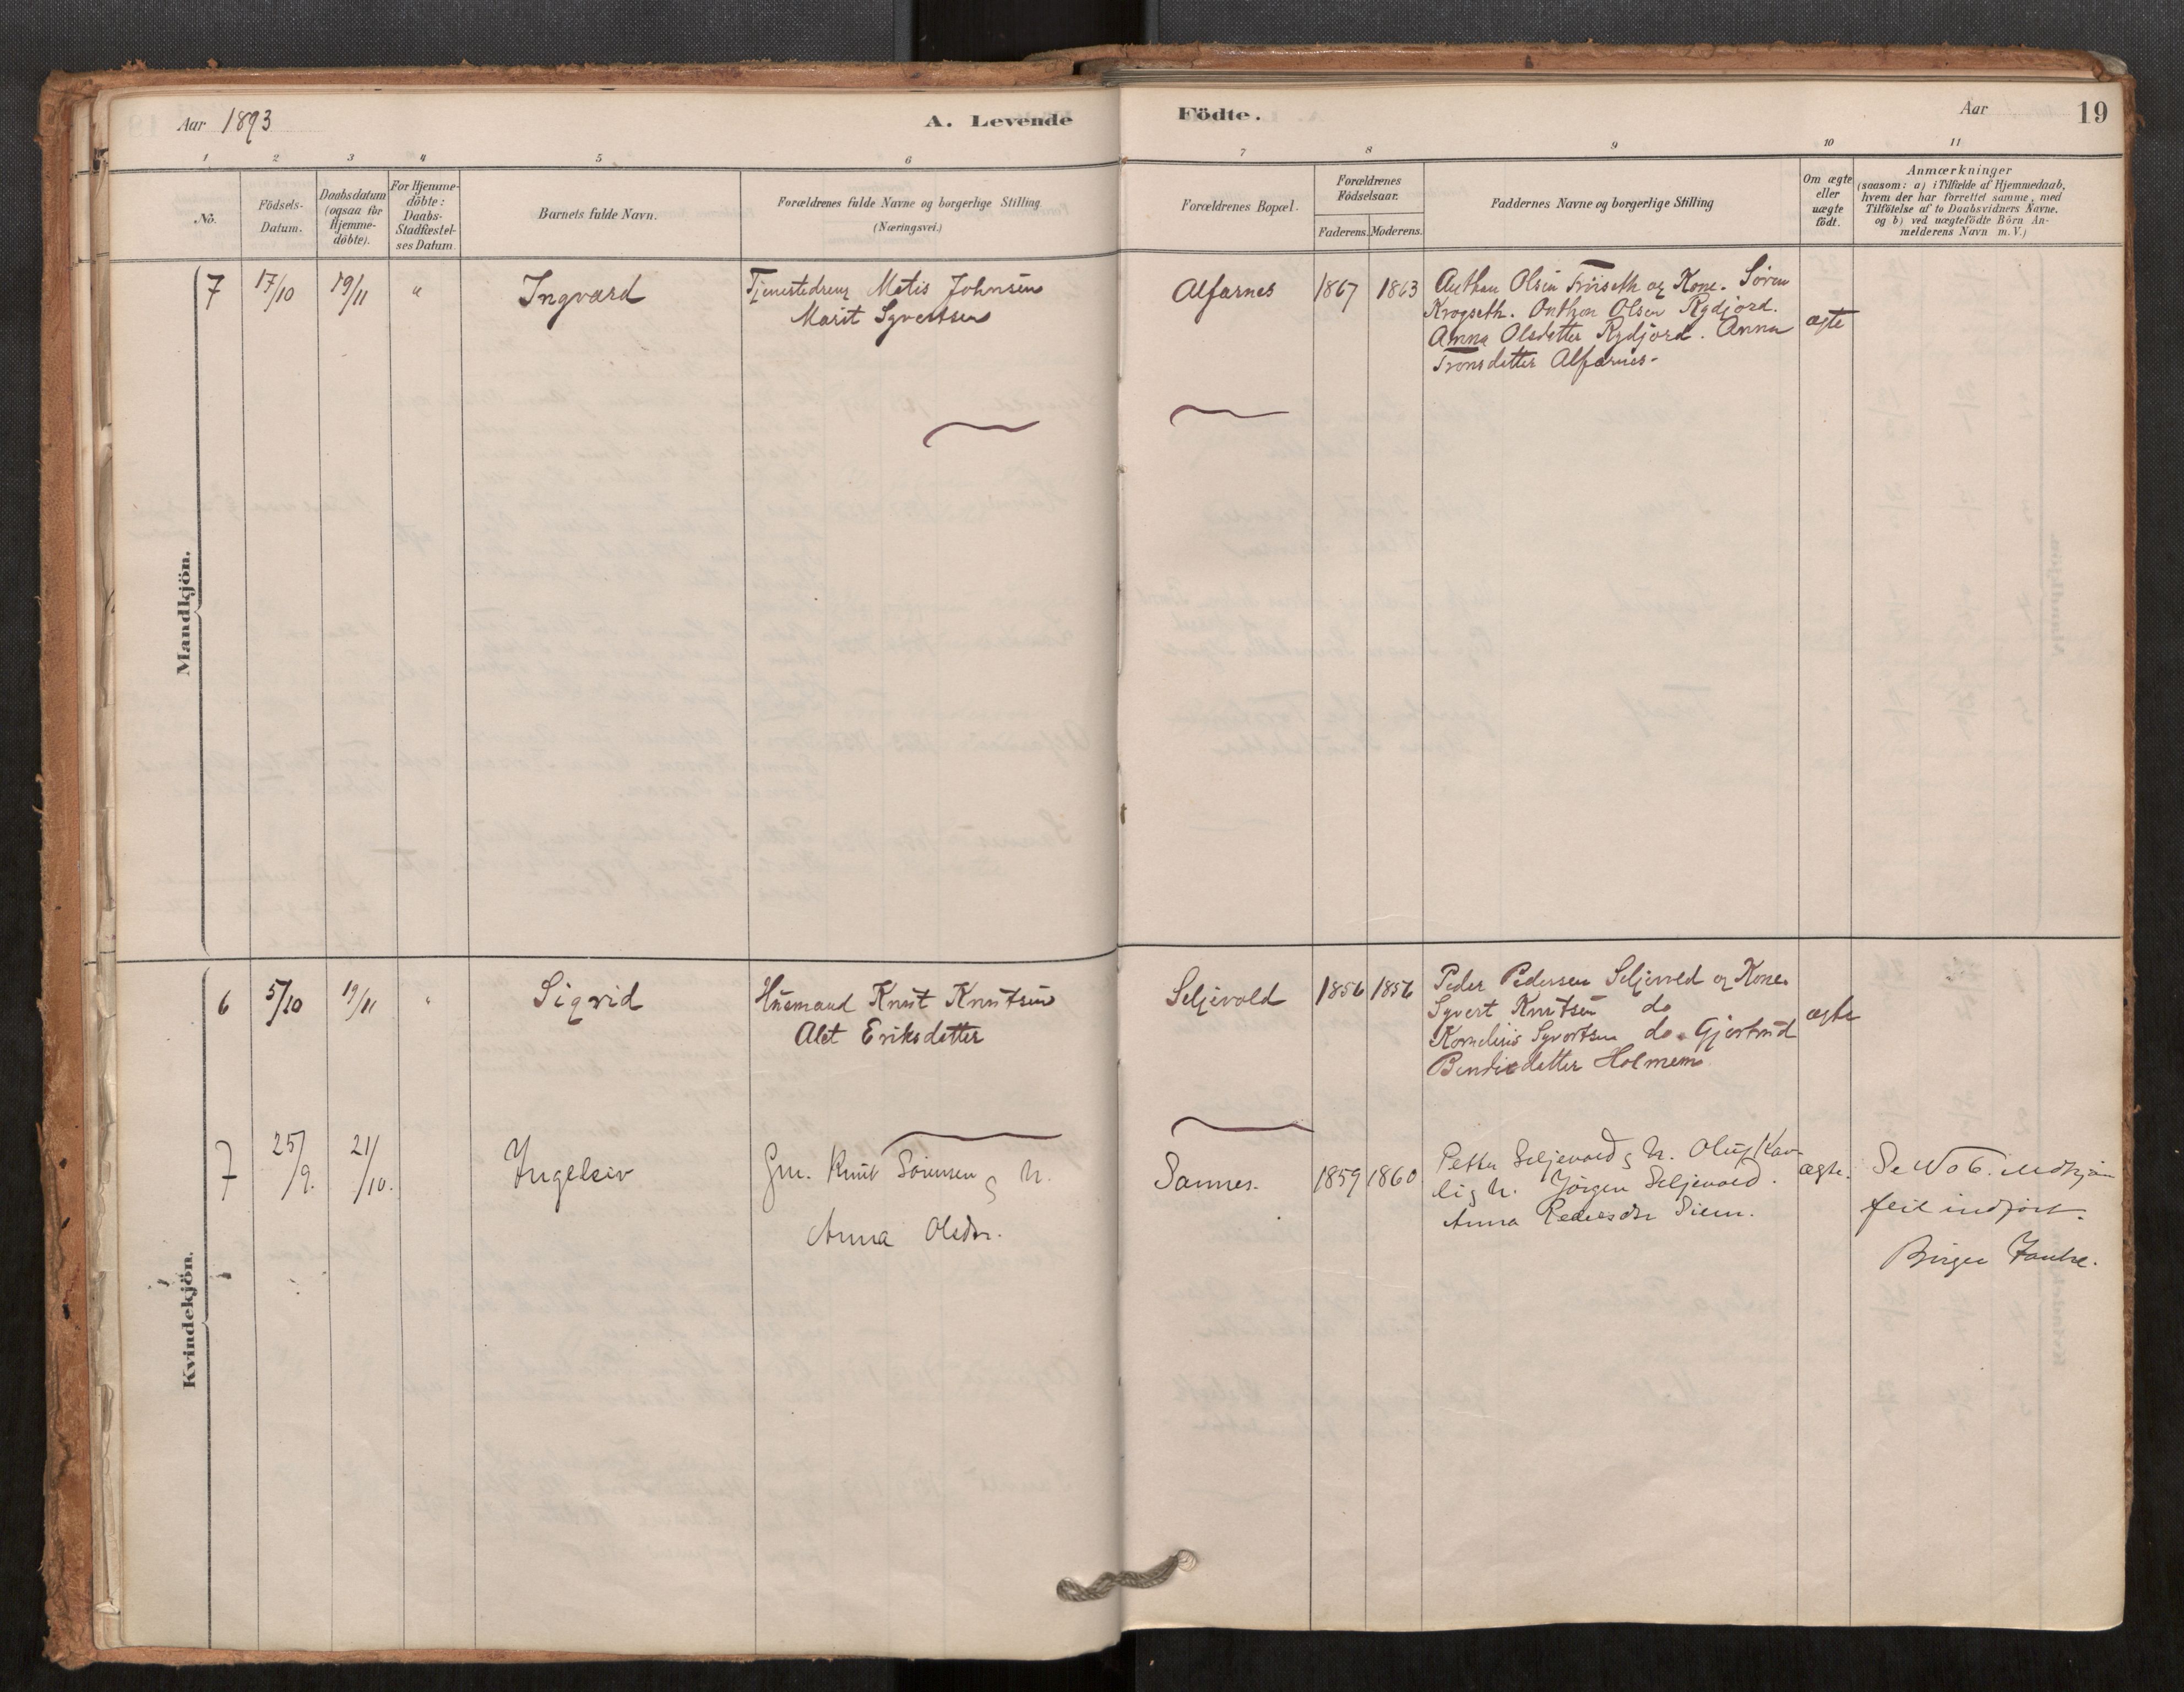 Aar 1893
A. Levende Födte.
Aar
19
1 2 3 4 5 6 7 8 9 10 11
No.
Födsels-
Datum.
Daabsdatum
(ogsaa for
Hjemme-
döbte).
For Hjemme-
döbte:
Daabs-
Stadfæstel-
ses Datum.
Barnets fulde Navn.
Forældrenes fulde Navne og borgerlige Stilling
(Næringsvei.)
Forældrenes Bopæl.
Forældrenes
Födselsaar.
Faderens. Moderens.
Faddernes Navne og borgerlige Stilling
Om ægte
eller
uægte
födt.
Anmærkninger
(saasom: a) i Tilfælde af Hjemmedaab,
hvem der har forrettet samme, med
Tilföielse af to Daabsvidners Navne.
og b) ved uægtefödte Börn An-
melderens Navn m.V.)
Mandkjön.
7 17/10 19/11 " Ingvard
Tjenestedreng Matis Johnsen
Marit Syvertsen
Alfarnes 1867 1863
Anthon Olsen og Kone. Søren
Krogseth. Anthon Olsen Rydjord.
Anna Olsdatter Rydjord. Anna
Tronsdatter Alfarnes.
ægte
Kvindekjön.
6 5/10 19/11 " Sigrid
Husmand Knut Knutsen
Alet Eriksdatter
Seljevold 1856 1856
Peder Pedersen Seljevold og Kone.
Syvert Knutsen do
Kornelius Syvertsen do. Gjertrud
Bendixdatter Holmem
ægte
7 25/9. 21/10. Ingeleiv
Gm. Knut Sørensen g h.
Anna Olsdr.
Sannes. 1859 1860
Petter Seljevold g h. Oluf Kav-
li g h. Jørgen Seljevold.
Anna Pedersdr Siem.
ægte.
Se No 6. Mdkjøn
feil indført.
Birger